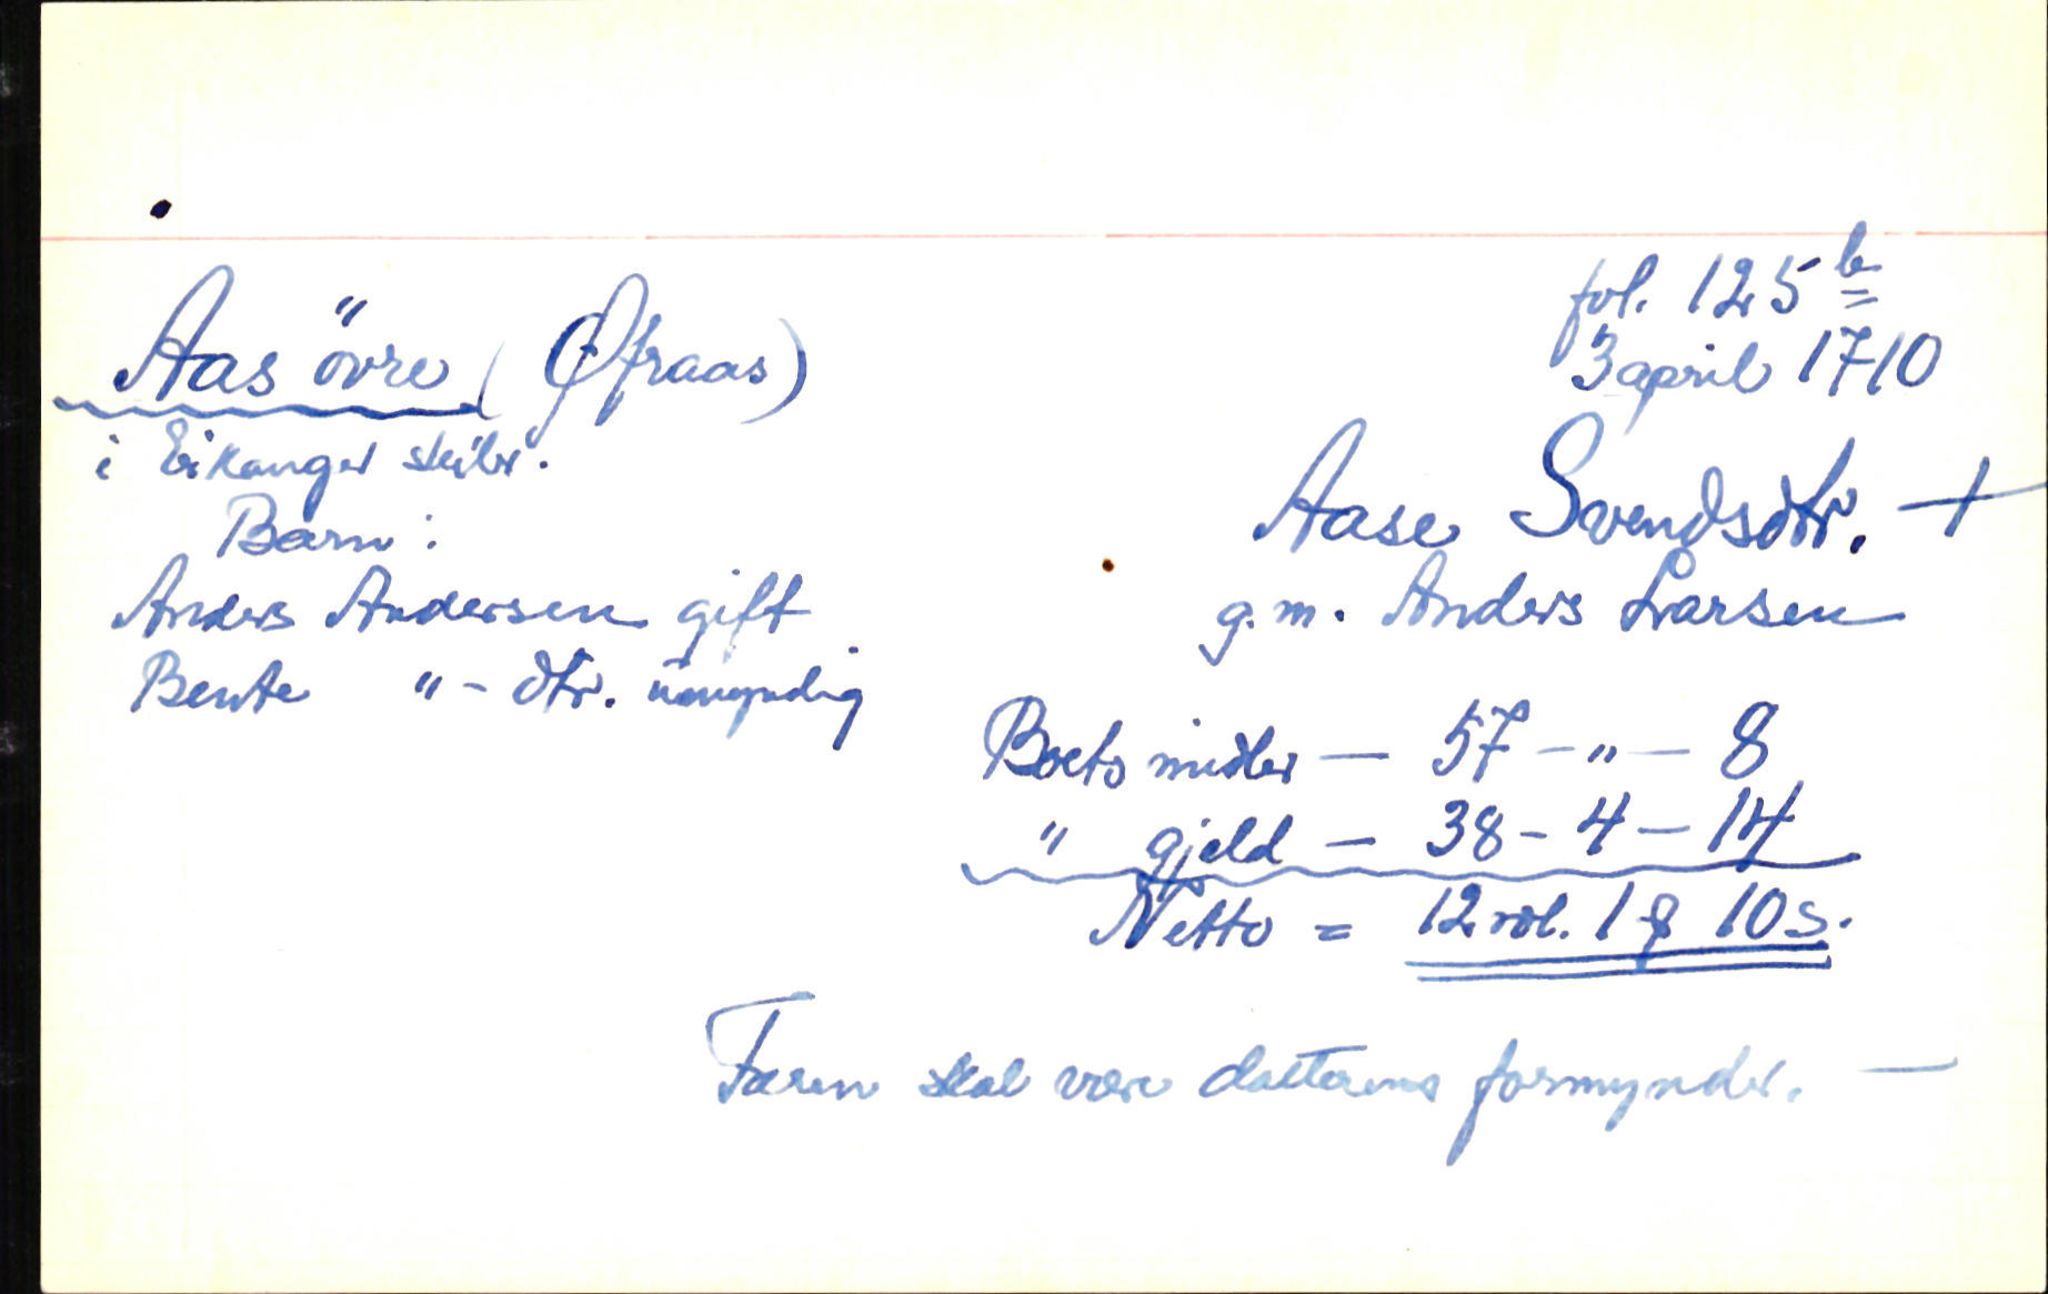 fol. 125 b
3 april 1710
Aas övre (Øfraas)
i Eikanger skibr.
Barn:
Anders Andersen gift
Bente "- dtr. umyndig
Aase Svendsdtr. +
g.m. Anders Larsen
Boets midler — 57 - " - 8
" gjeld — 38 - 4 - 14
Netto = 12 rdl. 1 ϙ 10 s.
Faren skal være datterens formynder. —